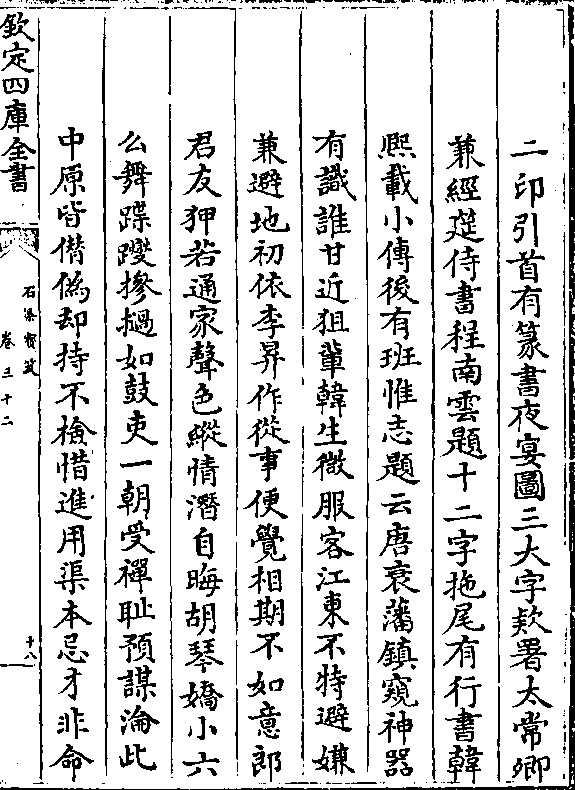 二印引首有篆書夜宴圖三大字欵署太常卿
兼經筵侍書程南雲題十二字拖尾有行書韓
熙載小傳後有班惟志題云唐衰藩鎮窺神器
有識誰甘近狙輩韓生微服客江東不特避嫌
兼避地初依李昇作從事便覺相期不如意郎
君友狎若通家聲色縱情潛自晦胡琴嬌小六
么舞蹀躞摻撾如鼓吏一朝受禪耻預謀淪此
中原皆僭偽却持不檢惜進用渠本忌才非命
欽定四庫全書
石渠寳笈
卷三十二
十八